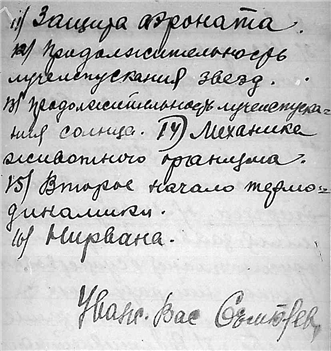 11) Защита аэроната.
12) Продолжительность
лучеиспускания звезд.
13) Продолжительность лучеиспуска-
ния солнца. 14) Механика
животного организма.
15) Второе начало термо-
динамики.
16) Нирвана.
Уваж. Вас